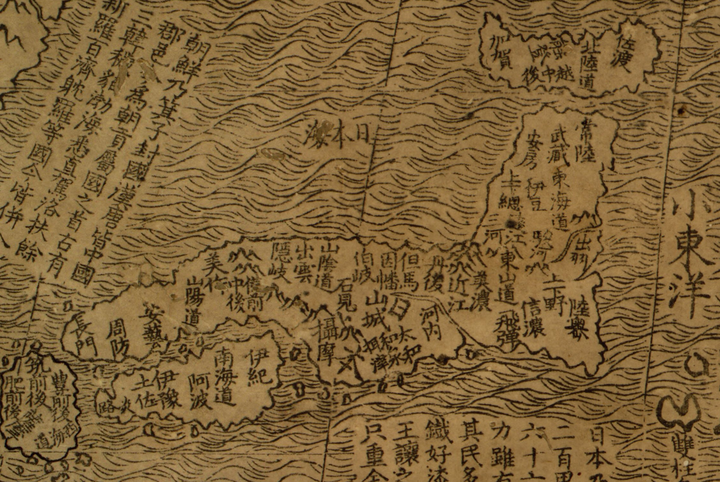 佐渡
北陸道
越中
越後
加賀
日本海
常陸
武藏
東海道
安房
伊豆
上總
小東洋
出羽
陸奧
上野
信濃
東山道
飛彈
美濃
近江
丹後
但馬
因幡
伯岐
山陰道
出雲
隱岐
石見
備前
中後
美作
山陽道
安藝
周防
長門
山城
大和
河内
攝摩
伊紀
南海道
阿波
伊豫
土佐
豊前後
筑前後
肥前後
朝鮮乃箕子封國漢唐皆中國
郡邑今為朝貢屬國之首古有
三韓穢貊渤海悉直駕洛扶餘
新羅百濟耽羅等國今皆併入
日本乃
二百里
六十六
力雖有
其民多
鐵好漆
王讓
只重金